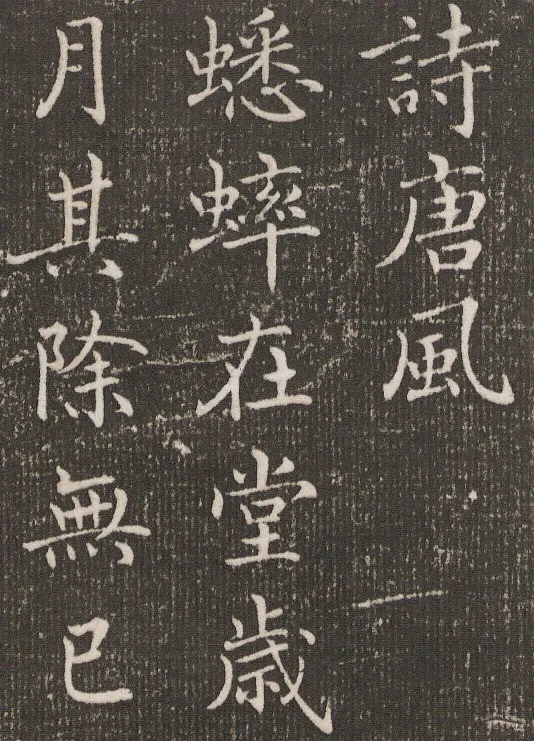 詩唐風
蟋蟀在堂歳
月其除無已